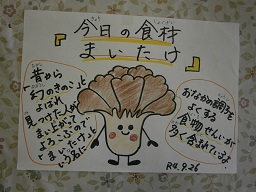 『今日の食材
まいたけ』
昔から
「幻のきのこ」と
よばれ
見つけた人が
まい上がって
よろこぶので
「まいたけ」と
いう名に
おなかの調子を
よくする
食物せんいが
多く含まれているよ
R4.9.26